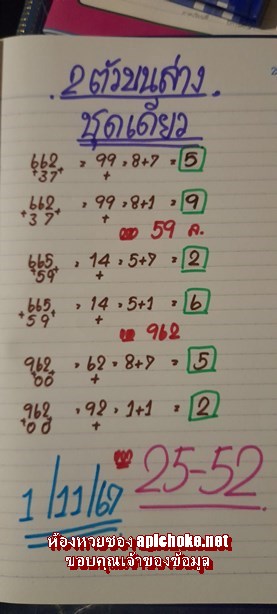 2 ตัวบนล่าง
ชุดเดียว
662 = 99 = 8+7 = 5
+37+ +
662 = 99 = 8+1 = 9
+37+ +
59 ล.
665 = 14 = 5+7 = 2
+59 +
665 = 14 = 5+1 = 6
+59+ +
962
962 = 62 = 8+7 = 5
00 +
962 = 92 = 1+1 = 2
+00 +
25-52
1/11/67
ห้องหวยซอง apichoke.net
ขอบคุณเจ้าของข้อมูล